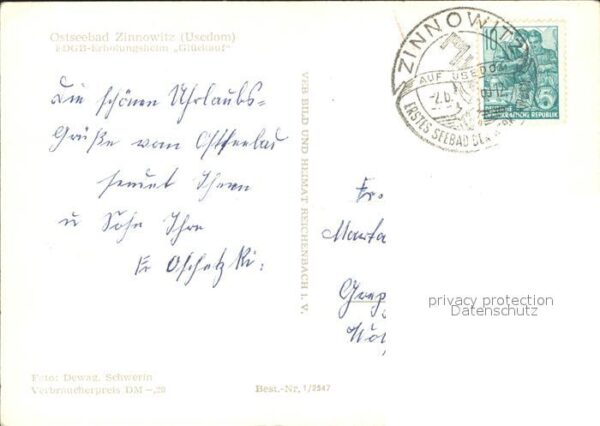 Ostseebad Zinnowitz (Usedom)
FDGB-Erholungsheim „Glückauf"
Die schönen Uhrlaubs-
Grüße vom Ostseebad
sendet Ihnen
u Sohn Ihre
Fr
VEB BILD UND HEIMAT REICHENBACH i. V.
ZINNOWITZ
AUF USEDOM
ERSTES SEEBAD DER
10
DEUTSCHE DEMOKRATISCHE REPUBLIK
Fr.
Marta
privacy protection
Datenschutz
Foto: Dewag, Schwerin
Verbraucherpreis DM –,20
Best.-Nr. 1/2547